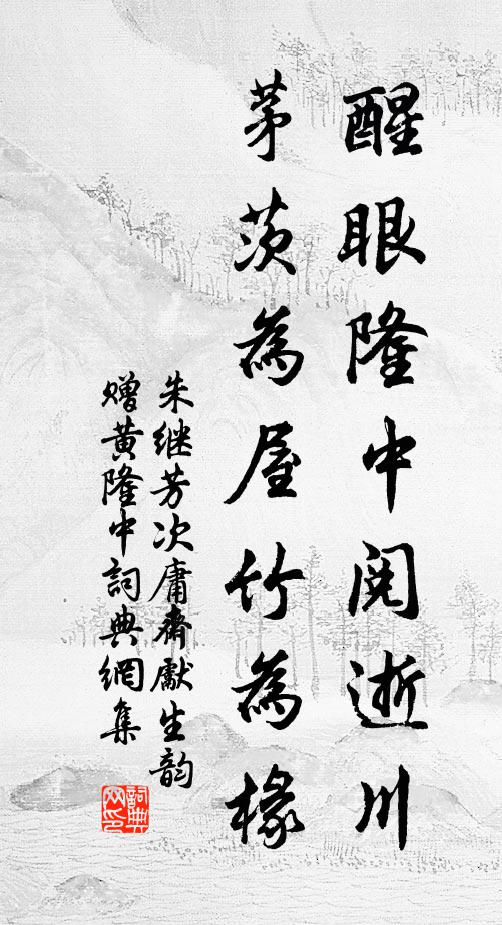 醒眼隆中阅逝川
茅茨為屋竹為椽
朱继芳次庸齋獻生韵
赠黄隆中詞典網集
詞典网印